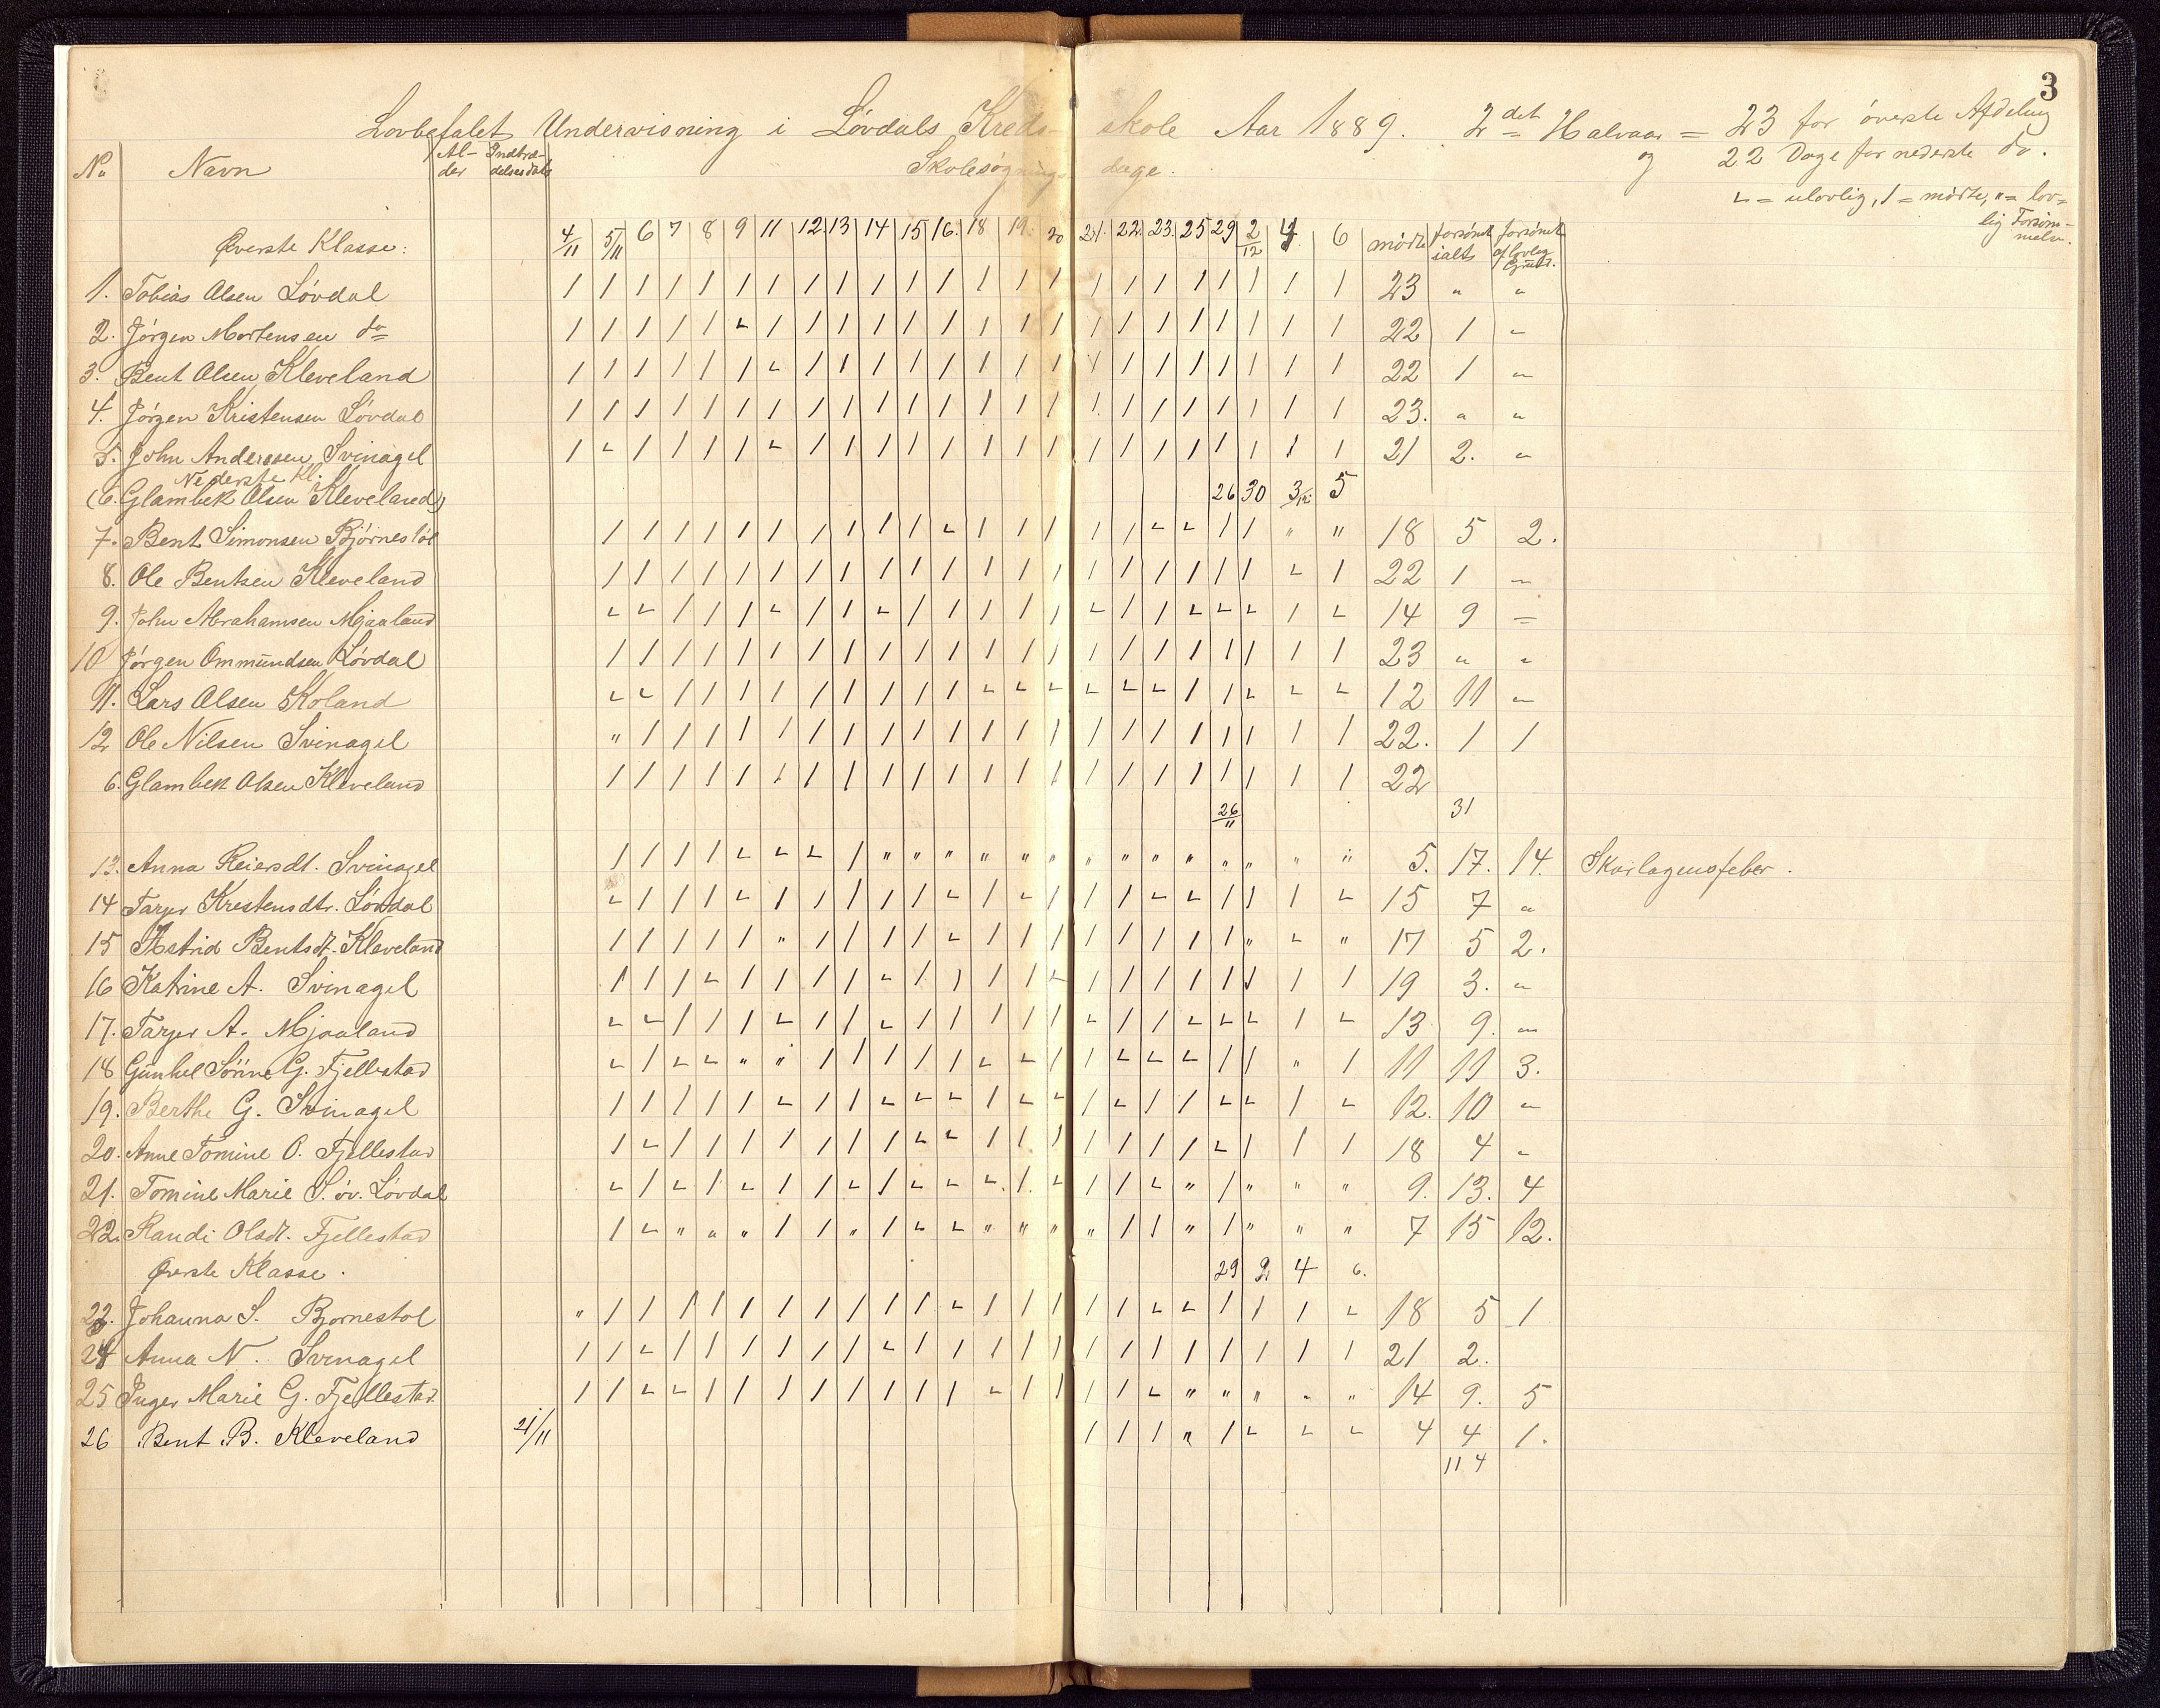 3
Lovbefalet Undervisning i Løvdals Kreds- skole Aar 1889. 2det Halvaar = 23 for øverste Afdeling
og 22 Dage for nederste do.
No Navn Al-der Indtræ-delsesdato Skolesøgnings dage.
⌐ = ulovlig, / = mødte, " = lov-
lig Forsøm-
melse.
Øverste Klasse: 4/11 5/11 6 7 8 9 11 12 13 14 15 16. 18 19. 20 21. 22. 23. 25 29 2/12 4 6 mødte forsømt ialt forsømt af lovlig Grund.
1. Tobias Olsen Løvdal / / / / / / / / / / / / / / / / / / / / / / / 23 " "
2. Jørgen Mortensen do / / / / / ⌐ / / / / / / / / / / / / / / / / / 22 1 "
3. Bent Olsen Kleveland / / / / / / ⌐ / / / / / / / / / / / / / / / / 22 1 "
4. Jørgen Kristensen Løvdal / / / / / / / / / / / / / / / / / / / / / / / 23. " "
5. John Anderssen Svinagel / ⌐ / / / / ⌐ / / / / / / / / / / / / / / / / 21 2. "
Nederste Kl.
(6. Glambek Olsen Kleveland) 26 30 3/12 5
7. Bent Simonsen Bjørnestøl / / / / / / / / / / ⌐ / / / / / ⌐ ⌐ / / " " 18 5 2.
8. Ole Bentsen Kleveland / / / / / / / / / / / / / / / / / / / / ⌐ / 22 1 "
9. John Abrahamsen Mjaaland ⌐ ⌐ / / / ⌐ / / ⌐ / / / / / ⌐ / / ⌐ ⌐ ⌐ / ⌐ 14 9 "
10 Jørgen Ommundsen Løvdal / / / / / / / / / / / / / / / / / / / / / / 23 " "
11. Lars Olsen Skoland ⌐ ⌐ / / / / / / / / / ⌐ ⌐ ⌐ ⌐ ⌐ ⌐ / / ⌐ ⌐ ⌐ 12 11 "
12 Ole Nilsen Svinagel " / / / / / / / / / / / / / / / / / / / / / 22. 1 1
6. Glambek Olsen Kleveland / / / / / / / / / / / / / / / / / / / / / / 22
26/11 31
13. Anna Reiersdt. Svinagel / / / / ⌐ ⌐ ⌐ / " " " " " " " " " " " " " " 5. 17. 14. Skarlagensfeber.
14 Tarjer Kristensdtr. Løvdal ⌐ / / / ⌐ / / / / / ⌐ / ⌐ / / / ⌐ ⌐ / / / ⌐ 15 7 "
15 Astrid Bentsdt. Kleveland / / / / / " / / / / ⌐ / / / / / / / / " ⌐ " 17 5 2.
16 Katrine A. Svinagel / / / ⌐ / / / / ⌐ / / / / ⌐ / / / / / / / / 19 3. "
17. Tarjer A. Mjaaland ⌐ ⌐ / / / ⌐ / / ⌐ / / / / / ⌐ / / ⌐ ⌐ ⌐ / ⌐ 13 9. "
18 Gunhel Sørine G. Fjellestad ⌐ / ⌐ ⌐ " " / / / / / ⌐ ⌐ / / ⌐ ⌐ ⌐ / / " / 11 11 3.
19. Berthe G. Svinagel / / / / / ⌐ / / ⌐ ⌐ ⌐ / ⌐ ⌐ / ⌐ / / ⌐ ⌐ / ⌐ 12. 10 "
20. Anne Tomine O. Fjellestad / ⌐ / / / / / / / ⌐ ⌐ / / / / / / / ⌐ / / / 18 4 "
21. Tomine Marie S. øv. Løvdal ⌐ / ⌐ / ⌐ / / ⌐ / ⌐ ⌐ ⌐ / ⌐ / / ⌐ " / " " " 9. 13. 4
22. Randi Olsdt. Fjellestad / ⌐ " " " / / " / ⌐ ⌐ " " " " / / " / " " " 7 15 12.
Øverste Klasse. 29 2 4 6.
23. Johanna S. Bjørnestøl " / / / / / / / / / / ⌐ / / / / / ⌐ ⌐ / / / ⌐ 18 5 1
24 Anna N. Svinagel / / ⌐ / / / / / / ⌐ / / / / / / / / / / / / / 21 2.
25 Inger Marie G. Fjellestad. / / ⌐ ⌐ / / / / / / / / ⌐ / / / / ⌐ " " " " " 14 9. 5
26 Bent B. Kleveland 21/11 / / / " / ⌐ ⌐ ⌐ 4 4 1.
114